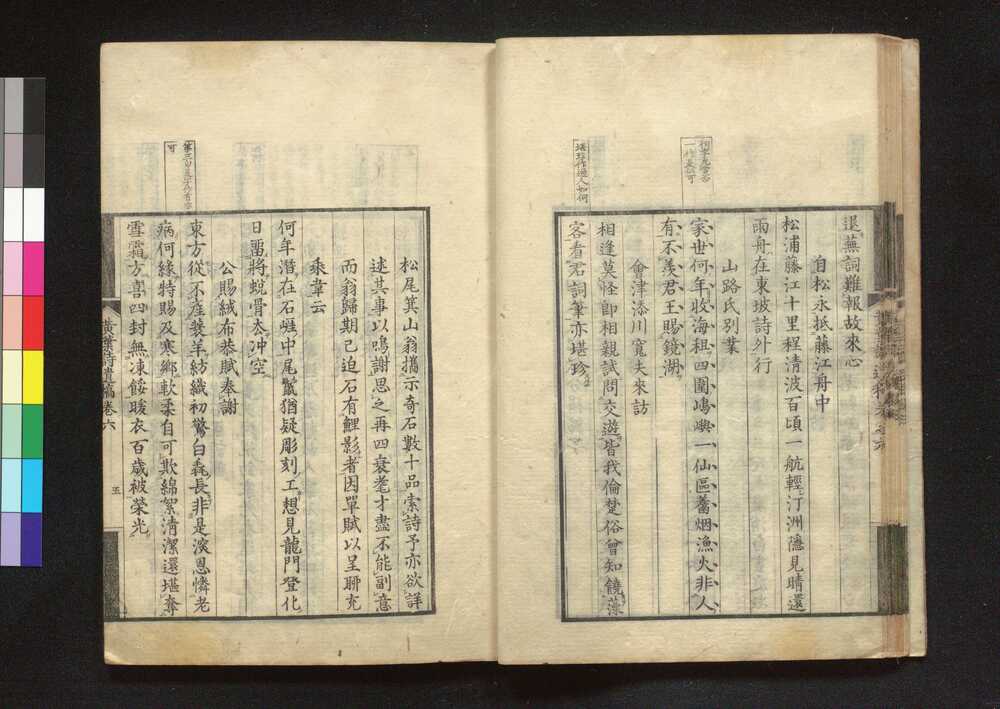 退蕪詞難報故來心
自松永抵藤江舟中
松浦藤江十里程清波百頃一航輕汀洲隱見晴還
雨舟在東坡詩外行
山路氏別業
家世何年收海租四圍嶋嶼一仙區蓄烟漁火非人
有不羨君王賜鏡湖
會津添川寬夫來訪
相逢莫怪卽相親試問交遊皆我倫楚俗曾知饒藻
客看君詞筆亦堪珍
堪珍作過人如何
松尾箕山翁攜示奇石數十品索詩予亦欲詳
述其事以鳴謝思之再四衰耄才盡不能副意
而翁歸期已迫石有鯉影者因單賦以呈聊充
乘韋云
何年潛在石崕中尾鬣猶疑彫刻工想見龍門登化
日畱將蛻骨厺冲空
公賜絨布恭賦奉謝
東方從不產裘羊紡織初驚白毳長非是渥恩憐老
病何緣特賜及寒鄉軟柔自可欺綿絮清潔還堪奪
雪霜方喜四封無凍餒暖衣百歲被榮光
黃葉詩遺稿卷六
五